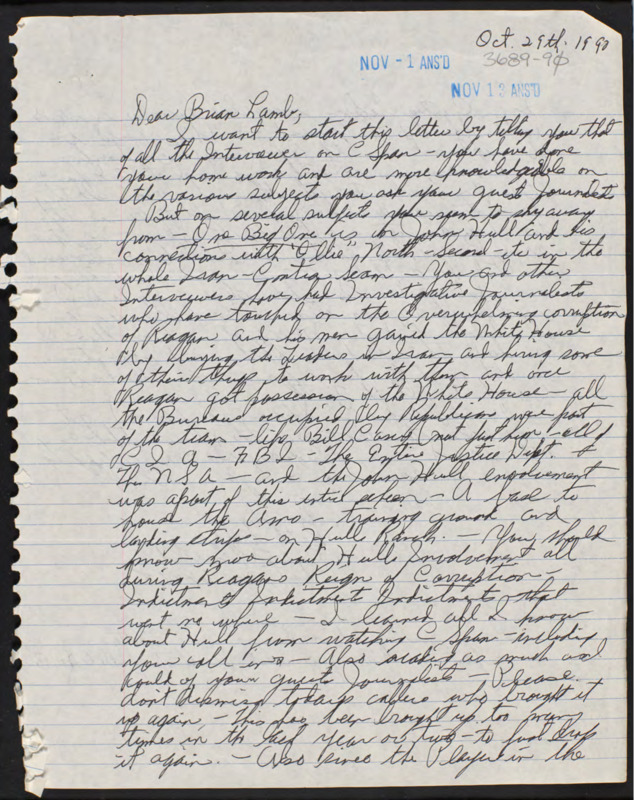 Oct. 29th. 1990
NOV - 1 ANS'D 3689-90
NOV 13 ANS'D
Dear Brian Lamb,
I want to start this letter by telling you that
of all the Interviewer on C Span - you have done
your home work and are more knowledgeable on
the various subjects you ask your guest Journalists
But on several subjects you seem to shy away
from - One Big One is on John Hull and his
connection with "Ollie" North - Second - its in the
whole Iran - Contra Scam - You and other
Interviewers have had Investigative Journalists
who have touched on the Overwhelming corruption
of Reagan and his men gained the White House
by buying the Leaders in Iran and hiring some
of their thugs to work with them and once
Reagan got possession of the White House - all
the Bureaus occupied by Republicans were part
of the team - Bill Casey (not just him - all of
C I A - F B I - The Entire Justice Dept. &
the N S A - and the John Hull
was a part of this entire - A base to
house the - training ground and
landing strips - on Hull Ranch. - You should
know more about Hulls Involvement all
during Reagans Reign of Corruption -
Indictment Indictment Indictments that
went no where - I learned all I know
about Hull from watching C Span - including
your call ins - Also reading as much as I
could of your guests Journalist - Please.
don't dismiss todays callers who brought it
up again - this has been brought up too many
times in the last year or two - to just drop
it again. - Also since the Player in the